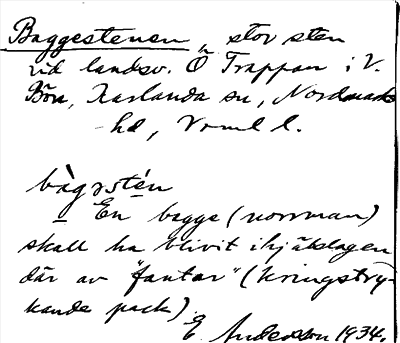 Baggestenen, stor sten
vid landsv. Ö Trappan i V.
Böra, Karlanda sn, Nordmarks
hd, Vrml l.
bàgəstén
En bagge (norrman)
skall ha blivit ihjälslagen
där av "fantar" (kringstry-
kande pack).
E. Anderson 1934.